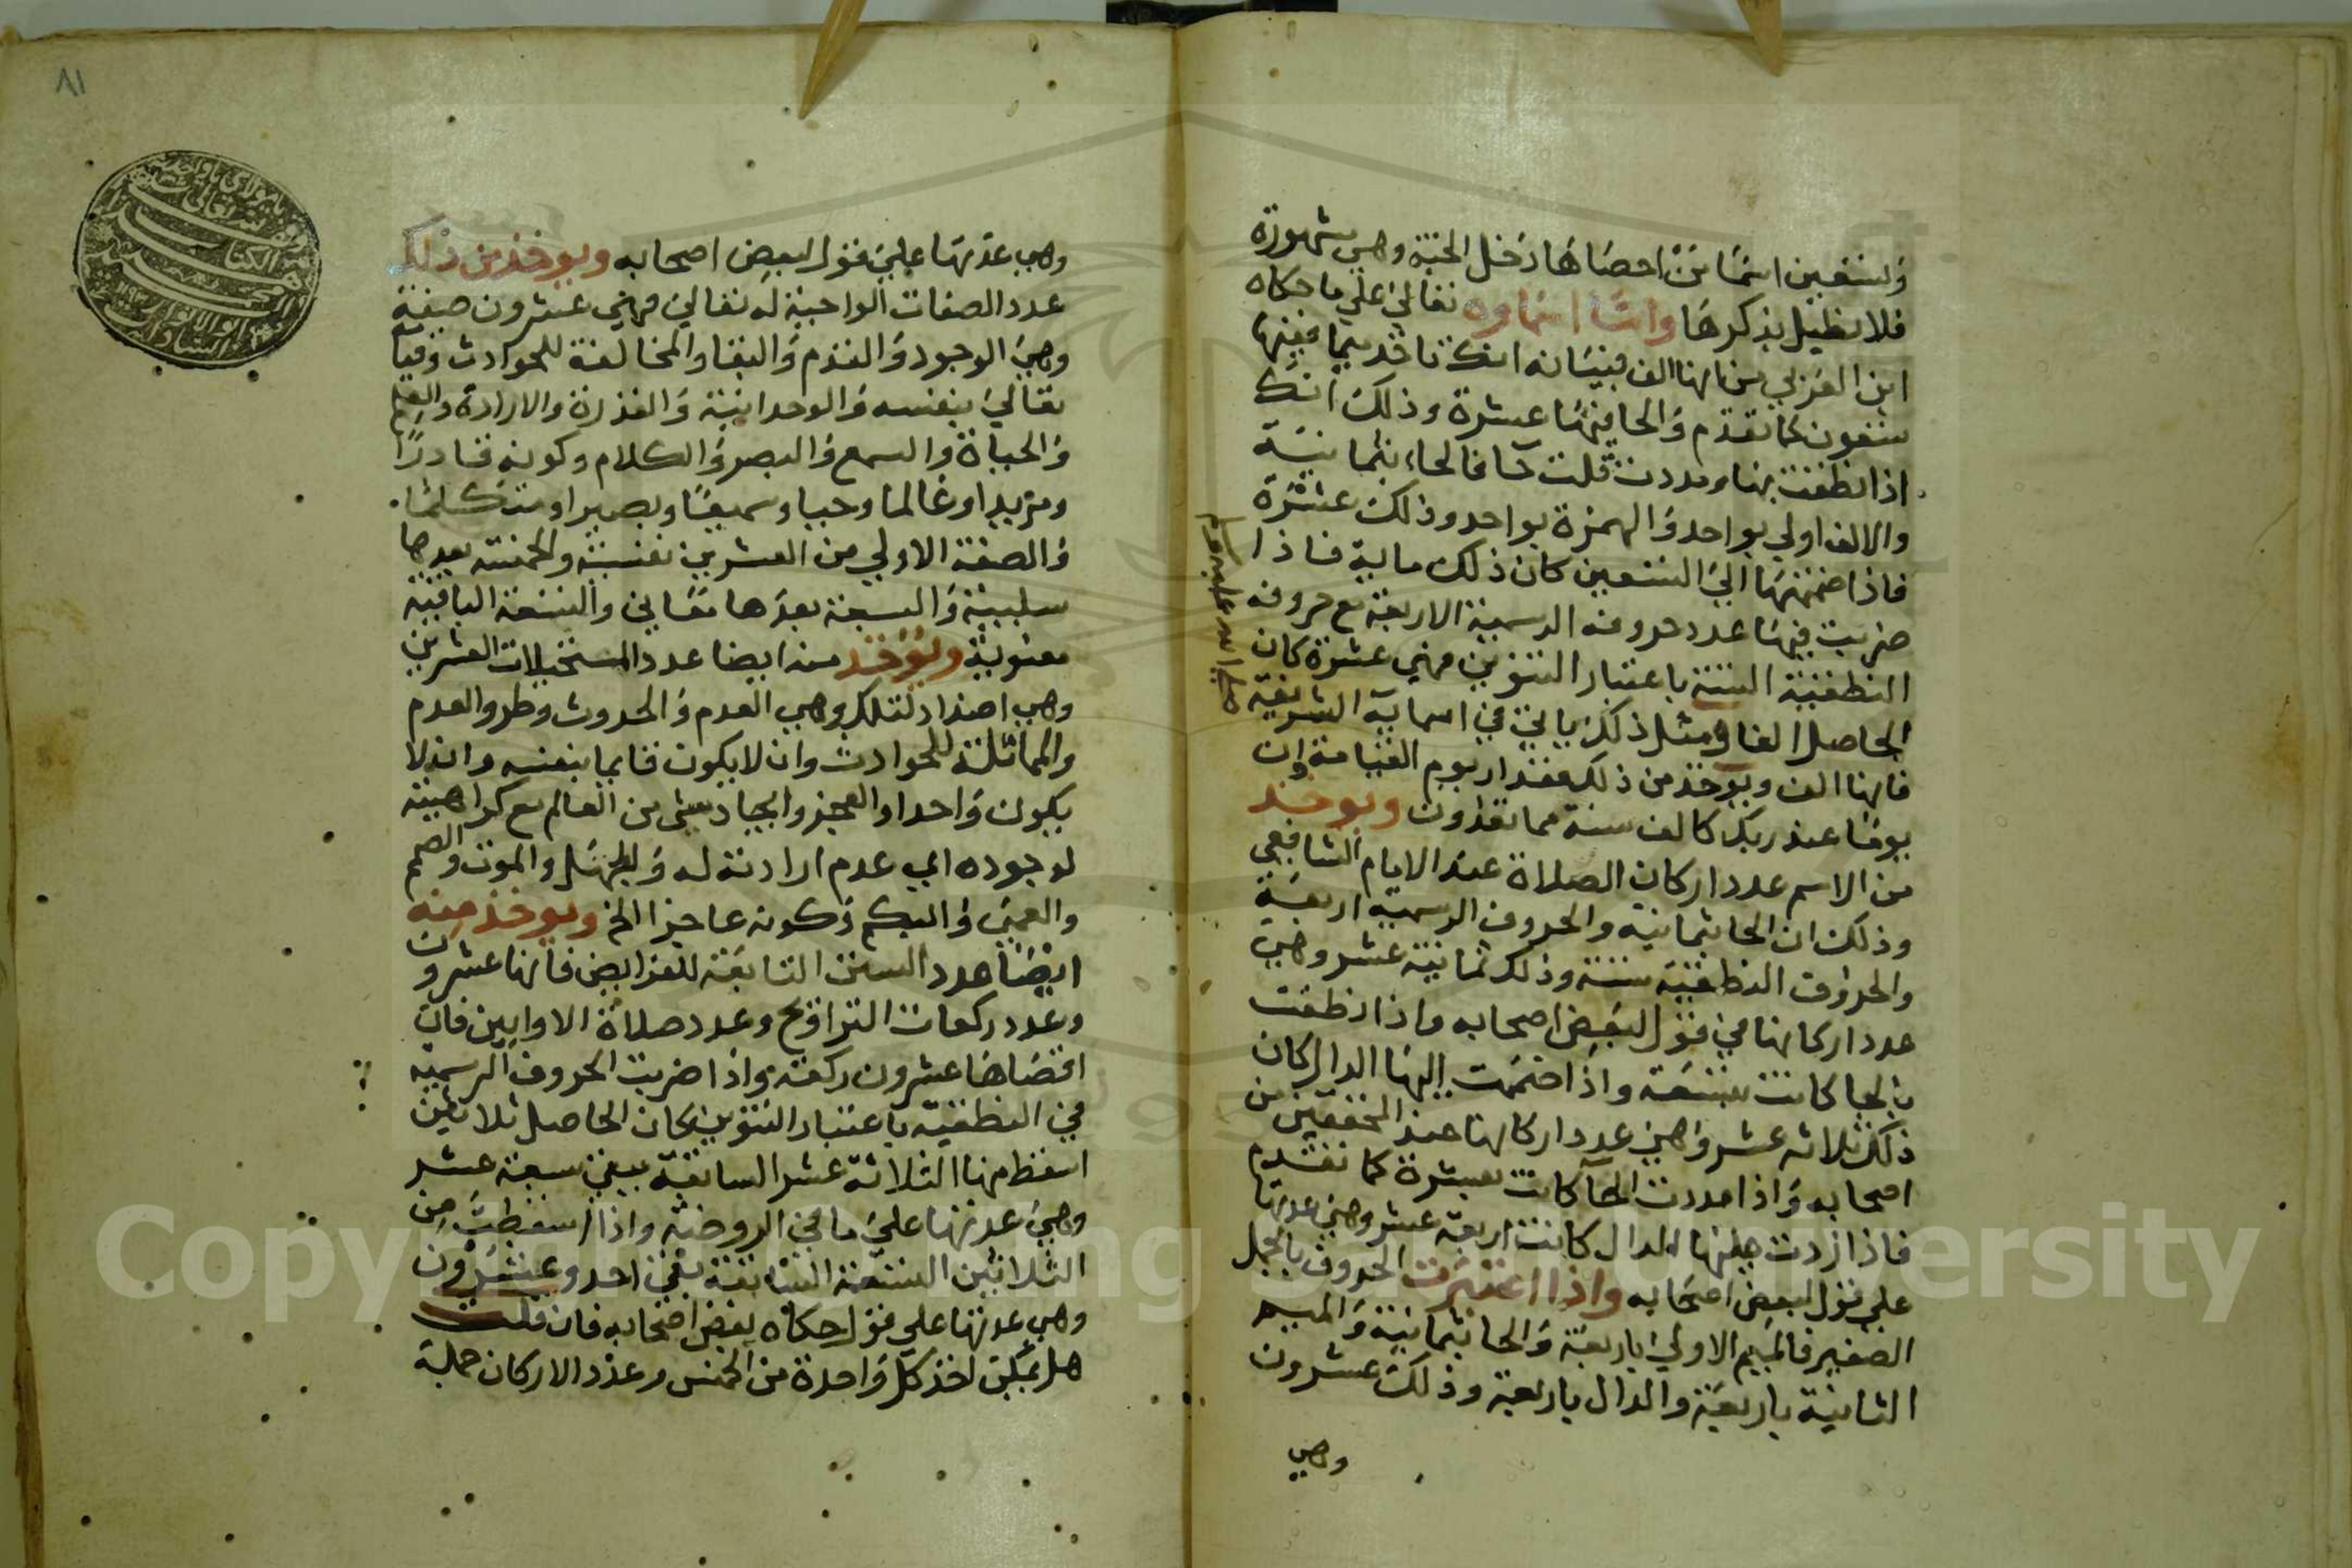 والتسعين اسما من احصاها دخل الجنة وهي مشهورة
فلا نطيل بذكرها واما اسماوه تعالى على ما حكاه
ابن العربي من انها الف فبيانه انك تاخد ميما فبينها
تسعون كما تقدم والحا فيها عشرة وذلك انك
اذا نطقت بها ومددت قلت حآ فالحاء بثمانية
والالف اولي بواحد والهمزة بواحد وذلك عشرة
فاذا ضممتها الى التسعين كان ذلك ماية فاذا
ضربت فيها عدد حروفه الرسمية الاربعة مع حروفه
النطقية الستة باعتبار التنوين فهي عشرة كان
الحاصل الفا ومثل ذلك ياتي في اسمايه الشريفة
صلى الله عليه وسلم
فانها الف ويوخذ من ذلك مقدار يوم القيامة وان
يوما عند ربك كالف سنة مما تعدون ويوخذ
من الاسم عدد اركان الصلاة عند الامام الشافعي
وذلك ان الحا بثمانية والحروف الرسمية اربعة
والحروف النطقية ستة وذلك ثمانية عشر وهي
عدد اركانها في قول لبعض اصحابه واذا نطقت
بالحا كانت بتسعة واذا ضممت اليها الدال كان
ذلك ثلاثه عشر وهي عدد اركانها عند المحققين من
اصحابه واذا مددت الحآ كانت بعشرة كما تقدم
فاذا زدت عليها الدال كانت اربعة عشر وهي عدتها
على قول لبعض اصحابه واذا اعتبرت الحروف بالجمل
الصغير فالميم الاولى باربعة والحا بثمانية والميم
الثانية باربعة والدال باربعة وذلك عشرون
وهي
٨١
وهي عدتها على قول لبعض اصحابه ويوخذ من ذلك
عدد الصفات الواجبة له تعالى فهي عشرون صفة
وهي الوجود والقدم والبقا والمخالفة للحوادث وقيامه
تعالى بنفسه والوحدانية والقدرة والارادة والعلم
والحياة والسمع والبصر والكلام وكونه قادرًا
ومريدا وعالما وحيا وسميعًا وبصيرا ومتكلمًا
والصفة الاولي من العشرين نفسية والخمسة بعدها
سلبية والسبعة بعدها معاني والسبعة الباقية
معنوية ويوخذ منه ايضا عدد المستحيلات العشرين
وهي اضداد لتلك وهي العدم والحدوث وطرو العدم
والمماثلة للحوادث وان لا يكون قايما بنفسه وان لا
يكون واحدا والعجز وايجاد شي من العالم مع كراهيته
لوجوده اي عدم ارادته له والجهل والموت والصمم
والعمى والبكم وكونه عاجزا الخ ويوخذ منه
ايضا عدد السنن التابعة للفرايض فانها عشرون
وعدد ركعات التراويح وعدد صلاة الاوابين فان
اقصاها عشرون ركعة واذا ضربت الحروف الرسمية
في النطقية باعتبار التنوين كان الحاصل ثلاثين
اسقط منها الثلاثة عشر السابقة يبقى سبعة عشر
وهي عدتها على ما في الروضة واذا اسقطت من
الثلاثين التسعة السابقة بقي احد وعشرون
وهي عدتها على قول حكاه بعض اصحابه فان قلت
هل يمكن اخذ كل واحدة من الخمس وعدد الاركان جملة
Copyright © King Saud University